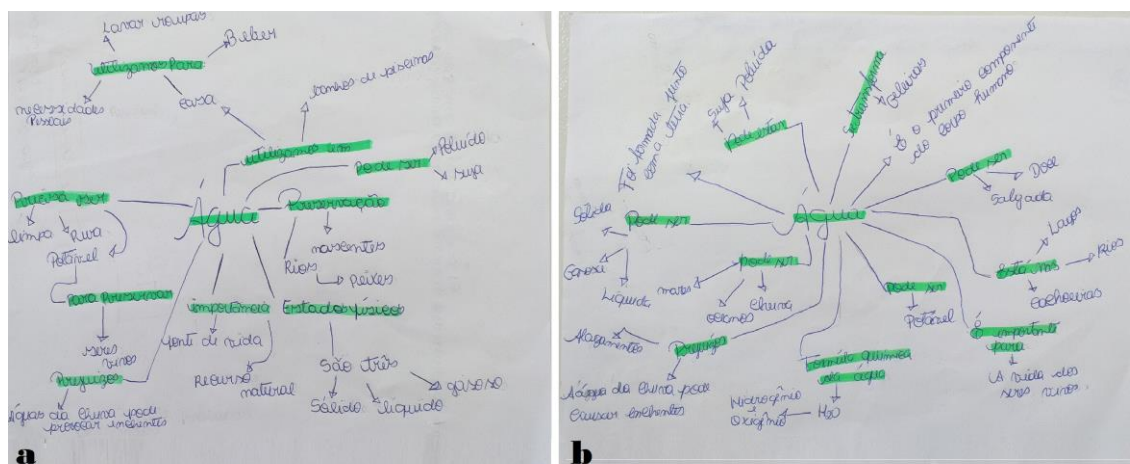 Lavar roupas
Beber
utilizamos para
necessidades
Pessoais
casa
banhos de piscinas
utilizamos em
Pode ser
Poluído
suja
Precisa ser
limpa
Pura
Potável
Água
Preservação
nascentes
Rios
Peixes
Para Preservar
seres
vivos
importância
fonte de vida
Recurso
natural
Estados físicos
São três
Sólido
líquido
gasoso
Prejuízos
Águas da chuva pode
provocar enchentes
a
Foi formada junto
com a terra.
Suja
Poluída
Pode estar
Se transforma
Geleiras
É o primeiro componente
do corpo humano.
Pode ser
Doce
Salgada
Sólida
Pode ser
Gasosa
Líquida
Água
Pode ser
mares
oceanos
Chuva
Está nos
Lagos
Rios
Cachoeiras
Pode ser
Potável
É
importante
para
A vida dos
seres vivos.
Alagamentos
Prejuízos
A água da chuva pode
causar enchentes
Formúla química
da água
H₂O
Hidrogênio
e
Oxigênio
b